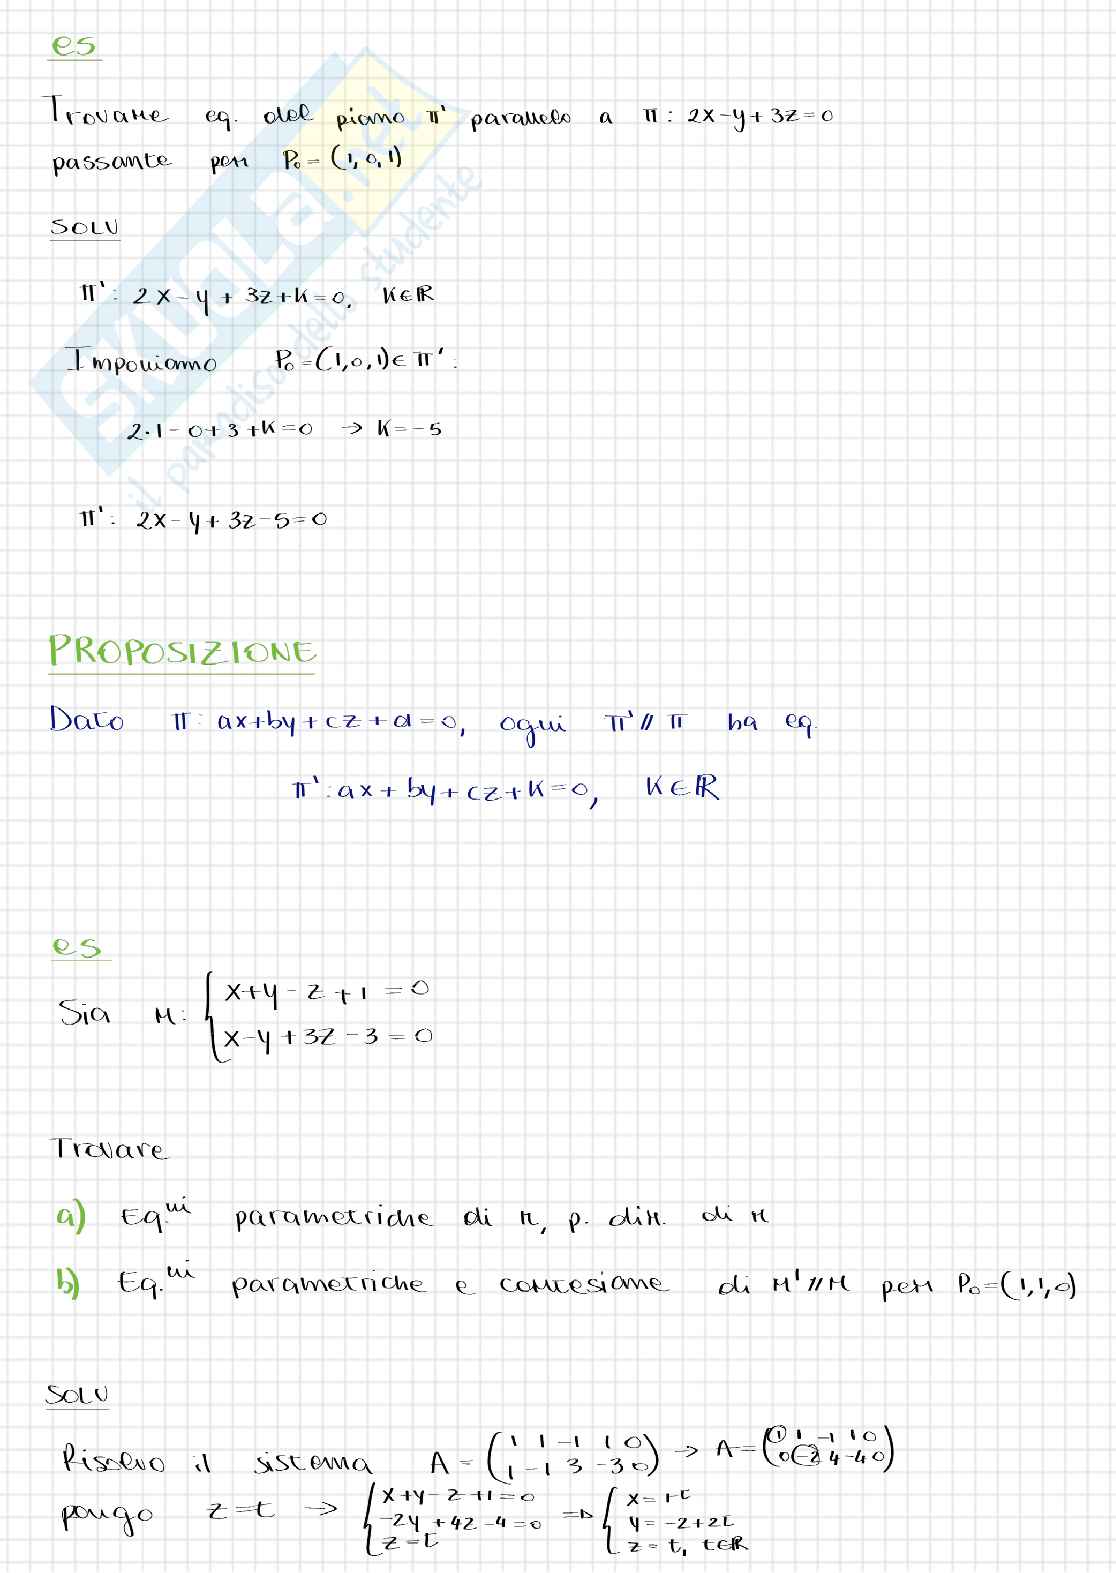 es
Trovare eq. del piano π' parallelo a π: 2x-y+3z=0
passante per P₀=(1,0,1)
SOLU
π': 2x-y+3z+k=0, k∈ℝ
Imponiamo P₀=(1,0,1)∈π':
2·1-0+3+k=0 → k=-5
π': 2x-y+3z-5=0
PROPOSIZIONE
Dato π: ax+by+cz+d=0, ogni π'//π ha eq.
π': ax+by+cz+k=0, k∈ℝ
es
Sia r: { x+y-z+1=0
x-y+3z-3=0
Trovare
a) Eq.ⁿⁱ parametriche di r, p. dir. di r
b) Eq.ⁿⁱ parametriche e cartesiane di r'//r per P₀=(1,1,0)
SOLU
Risolvo il sistema A=(1 1 -1 1 0 / 1 -1 3 -3 0) → A=(1 1 -1 1 0 / 0 -2 4 -4 0)
pongo z=t → { x+y-z+1=0 / -2y+4z-4=0 / z=t => { x=1-t / y=-2+2t / z=t, t∈ℝ
SKUOLA.net
il paradiso dello studente